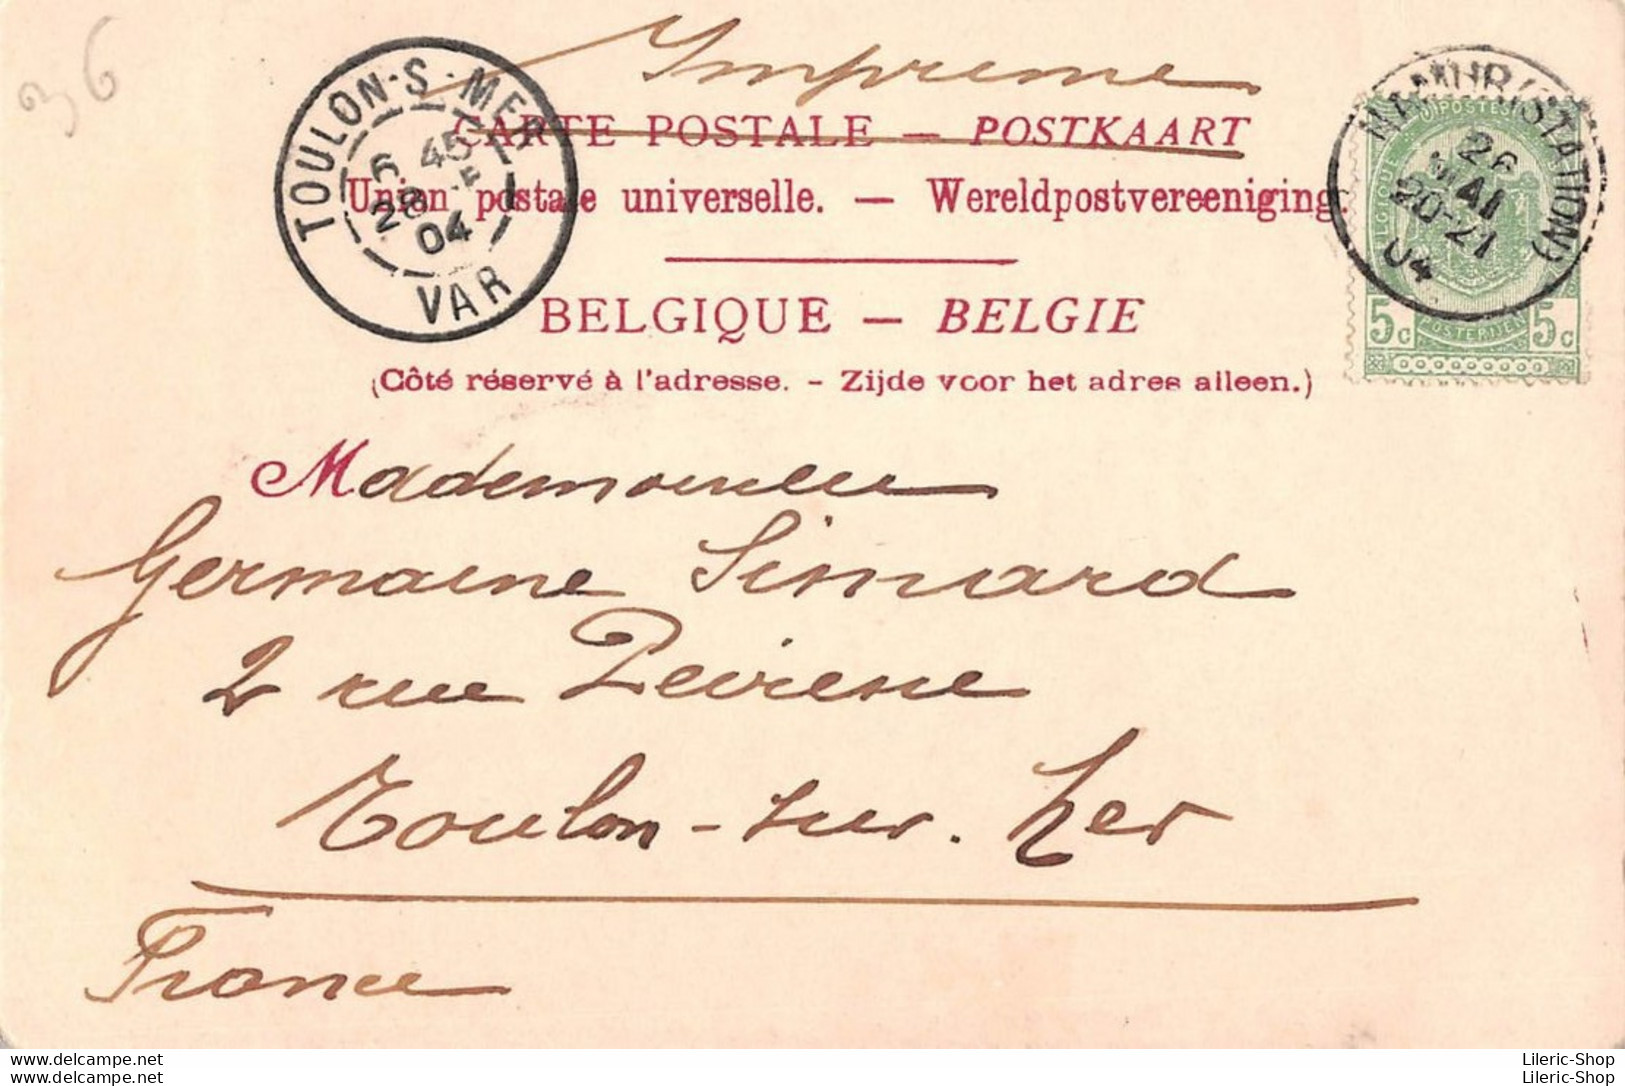 36
Imprimé
CARTE POSTALE — POSTKAART
Union postale universelle. — Wereldpostvereeniging.
BELGIQUE — BELGIE
(Côté réservé à l'adresse. - Zijde voor het adres alleen.)
TOULON-S-MER
6 45
28
04
VAR
NAMUR (STATION)
26
MAI
20-21
04
POSTES
BELGIQUE
5c POSTERIJEN 5c
Mademoiselle
Germaine Simard
2 rue Peiresc
Toulon-sur-Mer
France
delcampe.net
Lileric-Shop
delcampe.net
Lileric-Shop